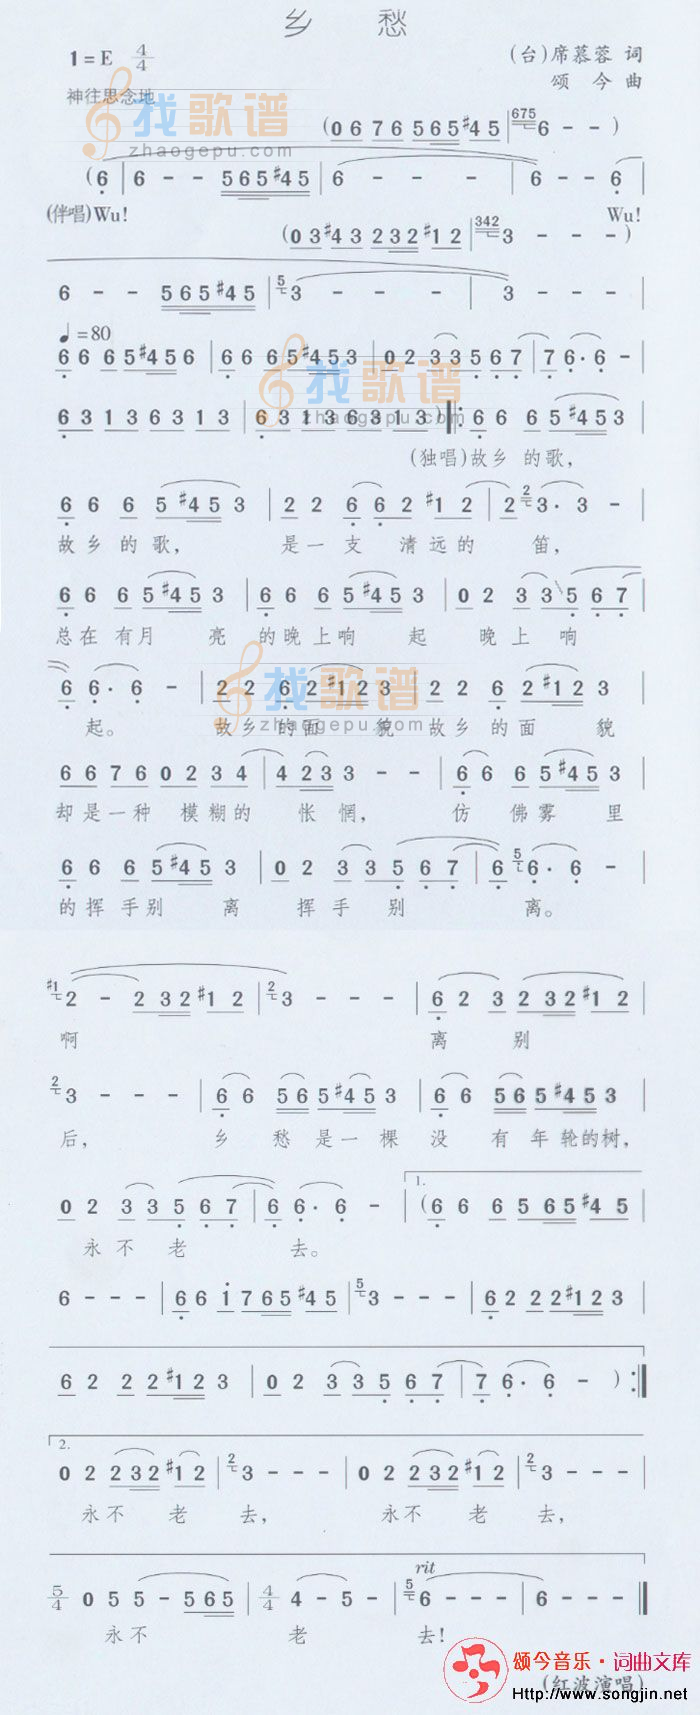 乡 愁
1=E 4/4
(台)席慕蓉 词
颂 今 曲
神往思念地
找歌谱
zhaogepu.com
(0 6 7 6 5 6 5 #4 5 | 675 6 - - )
(6 | 6 - - 5 6 5 #4 5 | 6 - - - | 6 - - 6 |
(伴唱)Wu! Wu!
(0 3 #4 3 2 3 2 #1 2 | 342 3 - - - )
6 - - 5 6 5 #4 5 | 5 3 - - - | 3 - - - |
♩=80
6 6 6 5 #4 5 6 | 6 6 6 5 #4 5 3 | 0 2 3 3 5 6 7 | 7 6· 6 - |
找歌谱
zhaogepu.com
6 3 1 3 6 3 1 3 | 6 3 1 3 6 3 1 3 ) ‖: 6 6 6 5 #4 5 3 |
(独唱)故乡 的歌，
6 6 6 5 #4 5 3 | 2 2 6 6 2 #1 2 | 2 2 3· 3 - |
故乡的歌， 是一支 清远的 笛，
6 6 6 5 #4 5 3 | 6 6 6 5 #4 5 3 | 0 2 3 3 5 6 7 |
总在 有月 亮 的晚上响 起 晚上 响
6 6· 6 - | 2 2 6 2 #1 2 3 | 2 2 6 2 #1 2 3 |
起。 故乡的面 貌 故乡的面 貌
找歌谱
zhaogepu.com
6 6 7 6 0 2 3 4 | 4 2 3 3 - - | 6 6 6 5 #4 5 3 |
却是一种 模糊的 怅惘， 仿 佛雾 里
6 6 6 5 #4 5 3 | 0 2 3 3 5 6 7 | 6 5 6· 6 - |
的挥手别 离 挥手 别 离。
#1 2 - 2 3 2 #1 2 | 2 3 - - - | 6 2 3 2 3 2 #1 2 |
啊 离 别
2 3 - - - | 6 6 5 6 5 #4 5 3 | 6 6 5 6 5 #4 5 3 |
后， 乡 愁是一棵 没 有年轮的树，
0 2 3 3 5 6 7 | 6 6· 6 - | 1. (6 6 6 5 6 5 #4 5 |
永不 老 去。
6 - - - | 6 6 1 7 6 5 #4 5 | 5 3 - - - | 6 2 2 2 #1 2 3 |
6 2 2 2 #1 2 3 | 0 2 3 3 5 6 7 | 7 6· 6 - ) :‖
2.
0 2 2 3 2 #1 2 | 2 3 - - - | 0 2 2 3 2 #1 2 | 2 3 - - - |
永不 老 去， 永不 老 去，
rit
5/4 0 5 5 - 5 6 5 | 4/4 4 - 5 - | 5 6 - - - | 6 - - - ‖
永不 老 去!
颂今音乐·词曲文库
(红波演唱)
Http://www.songjin.net/